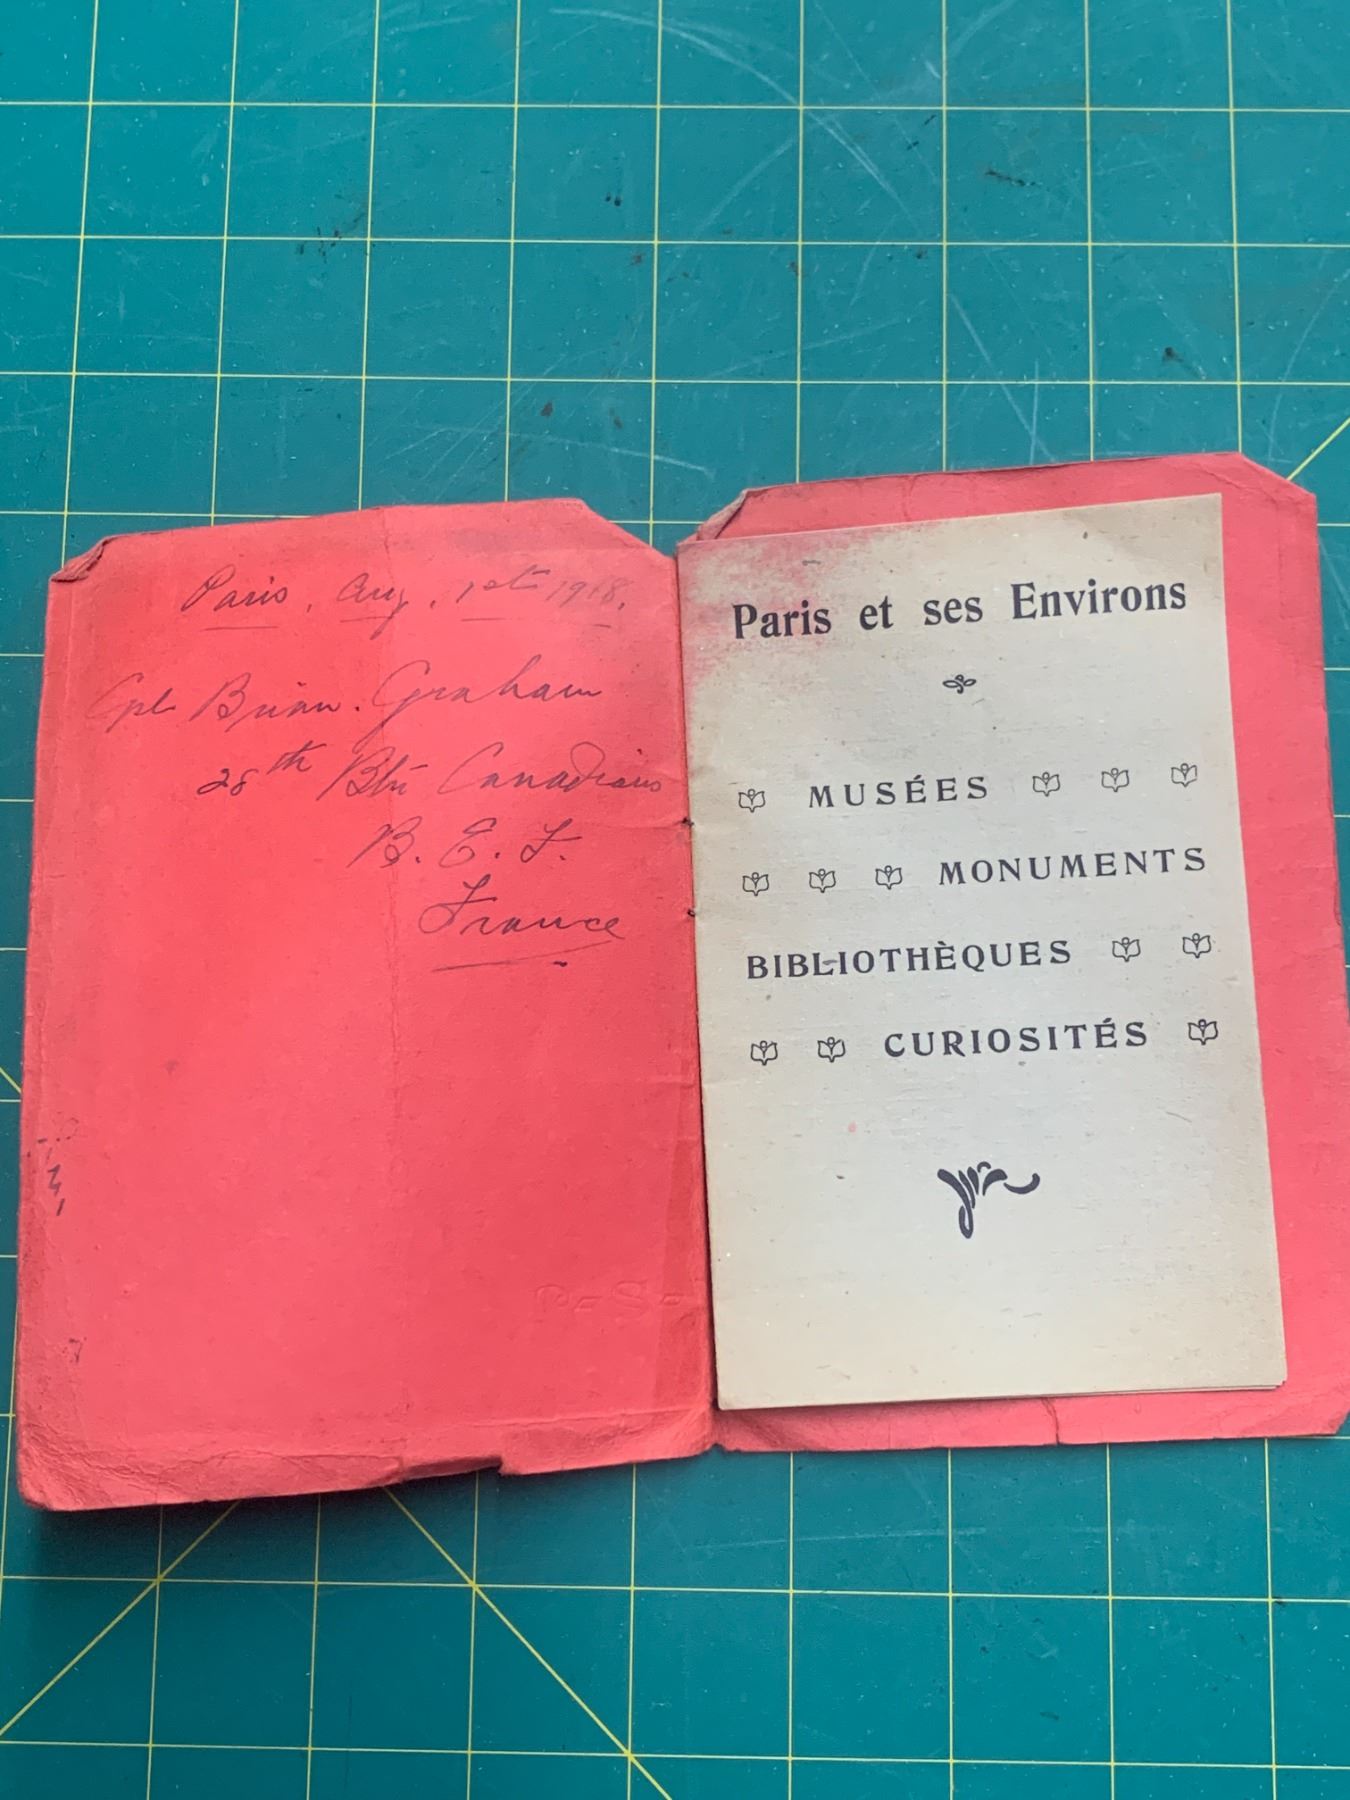 Paris, Aug, 1st 1918.
Cpl Brian. Graham
28th Btn Canadians
B. E. F.
France
Paris et ses Environs
MUSÉES
MONUMENTS
BIBLIOTHÈQUES
CURIOSITÉS